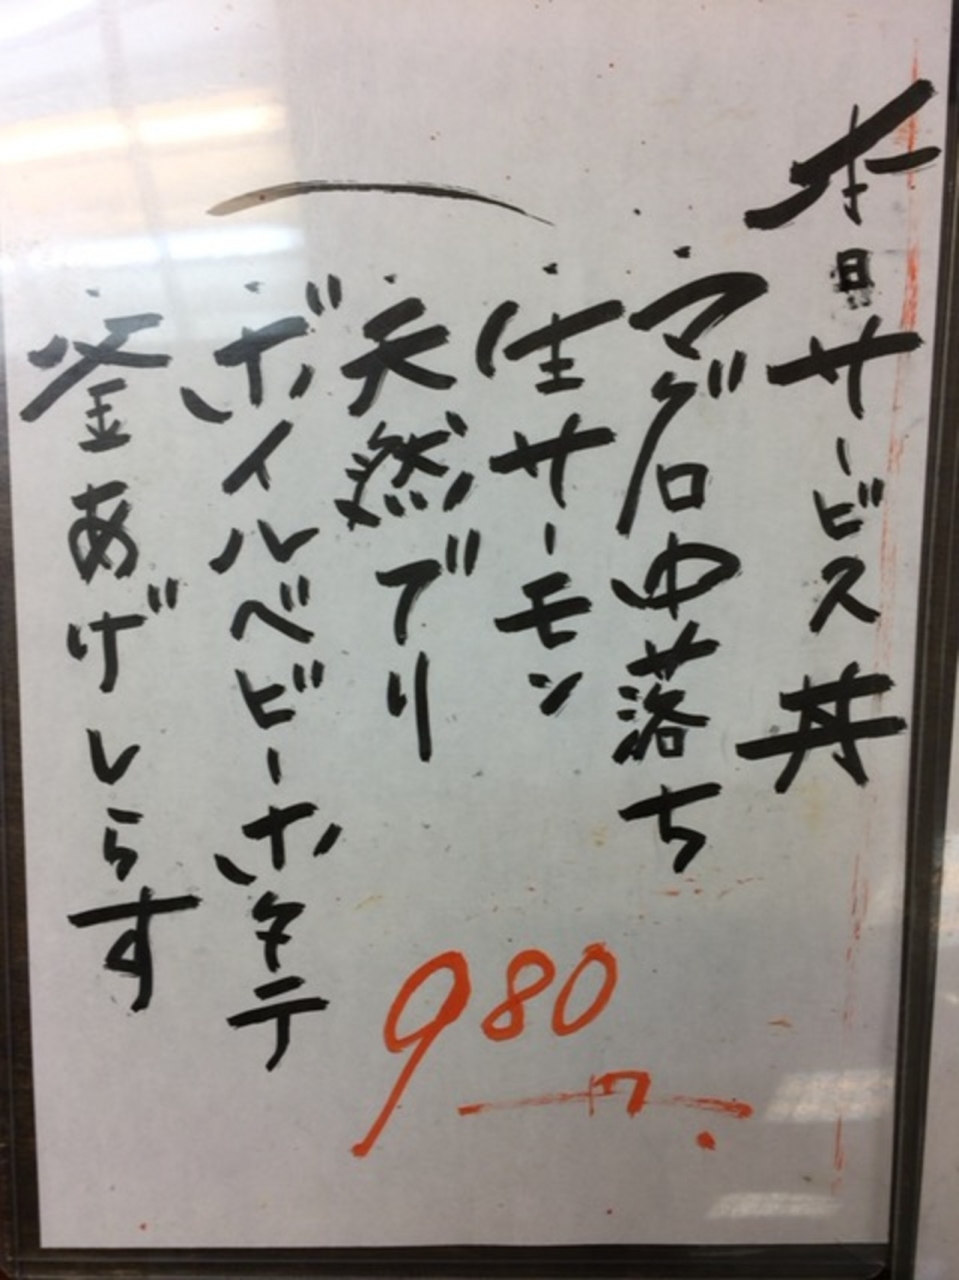 本日サービス丼
・マグロ中落ち
・生サーモン
・天然ブリ
・ボイルベビーホタテ
・釜あげしらす
980円